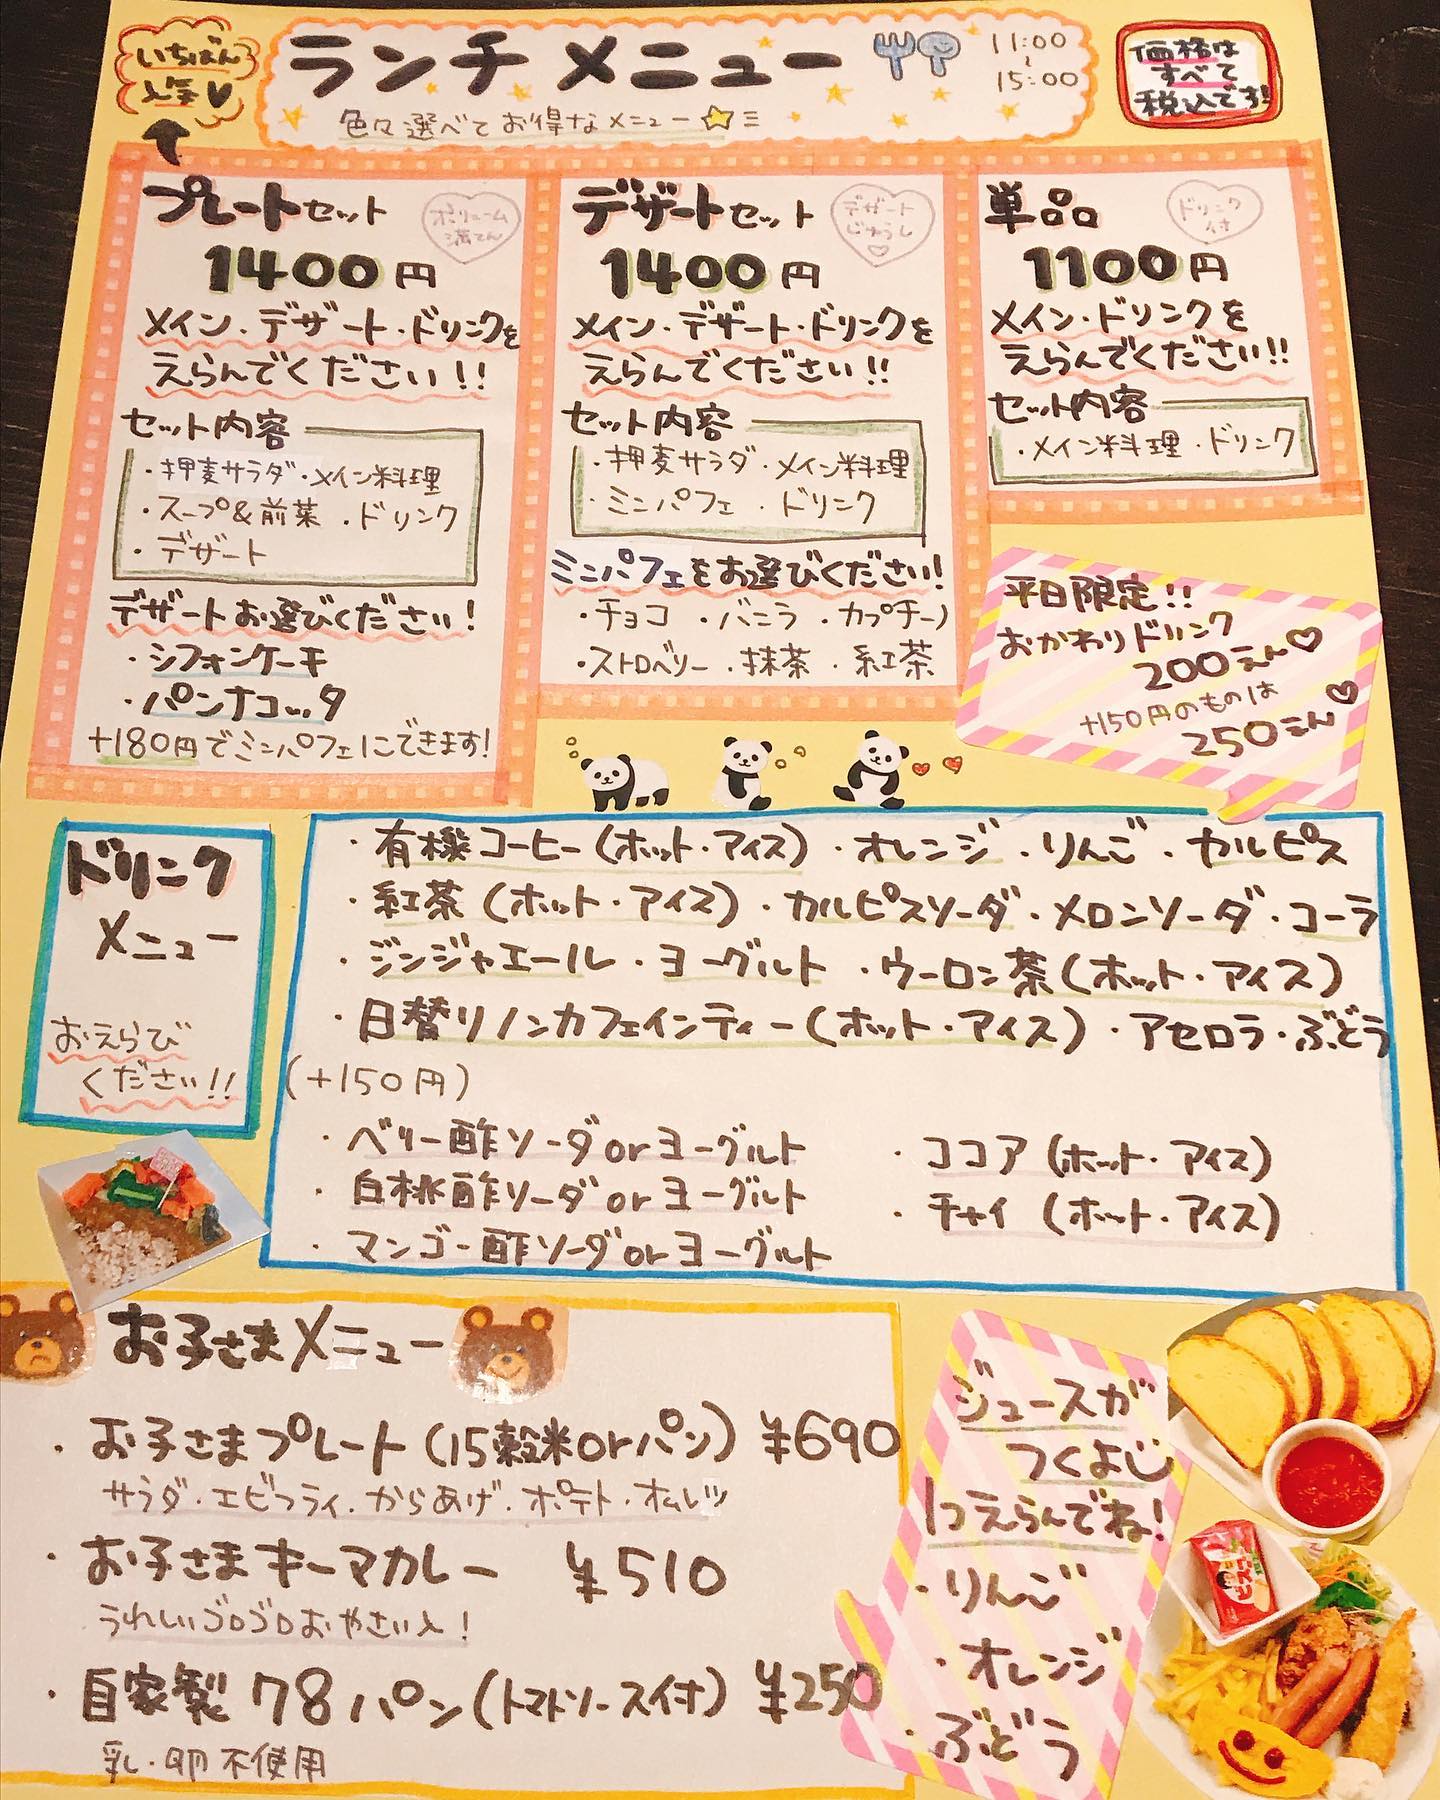 いちばん
人気♥
ランチメニュー
11:00
～
15:00
価格は
すべて
税込です!
色々選べてお得なメニュー☆
プレートセット
ボリューム
満てん
1400円
メイン・デザート・ドリンクを
えらんでください!!
セット内容
・押麦サラダ・メイン料理
・スープ&前菜・ドリンク
・デザート
デザートお選びください!
・シフォンケーキ
・パンナコッタ
+180円でミニパフェにできます!
デザートセット
デザート
じゅうし
♡
1400円
メイン・デザート・ドリンクを
えらんでください!!
セット内容
・押麦サラダ・メイン料理
・ミニパフェ・ドリンク
ミニパフェをお選びください!
・チョコ ・バニラ ・カプチーノ
・ストロベリー ・抹茶 ・紅茶
単品
ドリンク
付
1100円
メイン・ドリンクを
えらんでください!!
セット内容
・メイン料理・ドリンク
平日限定!!
おかわりドリンク
200えん♡
+150円のものは
250えん♡
ドリンク
メニュー
おえらび
ください!!
・有機コーヒー(ホット・アイス)・オレンジ・りんご・カルピス
・紅茶(ホット・アイス)・カルピスソーダ・メロンソーダ・コーラ
・ジンジャエール・ヨーグルト・ウーロン茶(ホット・アイス)
・日替りノンカフェインティー(ホット・アイス)・アセロラ・ぶどう
(+150円)
・ベリー酢ソーダorヨーグルト ・ココア(ホット・アイス)
・白桃酢ソーダorヨーグルト ・チャイ(ホット・アイス)
・マンゴー酢ソーダorヨーグルト
お子さまメニュー
・お子さまプレート(15穀米orパン) ¥690
サラダ・エビフライ・からあげ・ポテト・オムレツ
・お子さまキーマカレー ¥510
うれしいゴロゴロおやさい入!
・自家製 78パン(トマトソース付) ¥250
乳・卵不使用
ジュースが
つくよじ
1つえらんでね!
・りんご
・オレンジ
・ぶどう